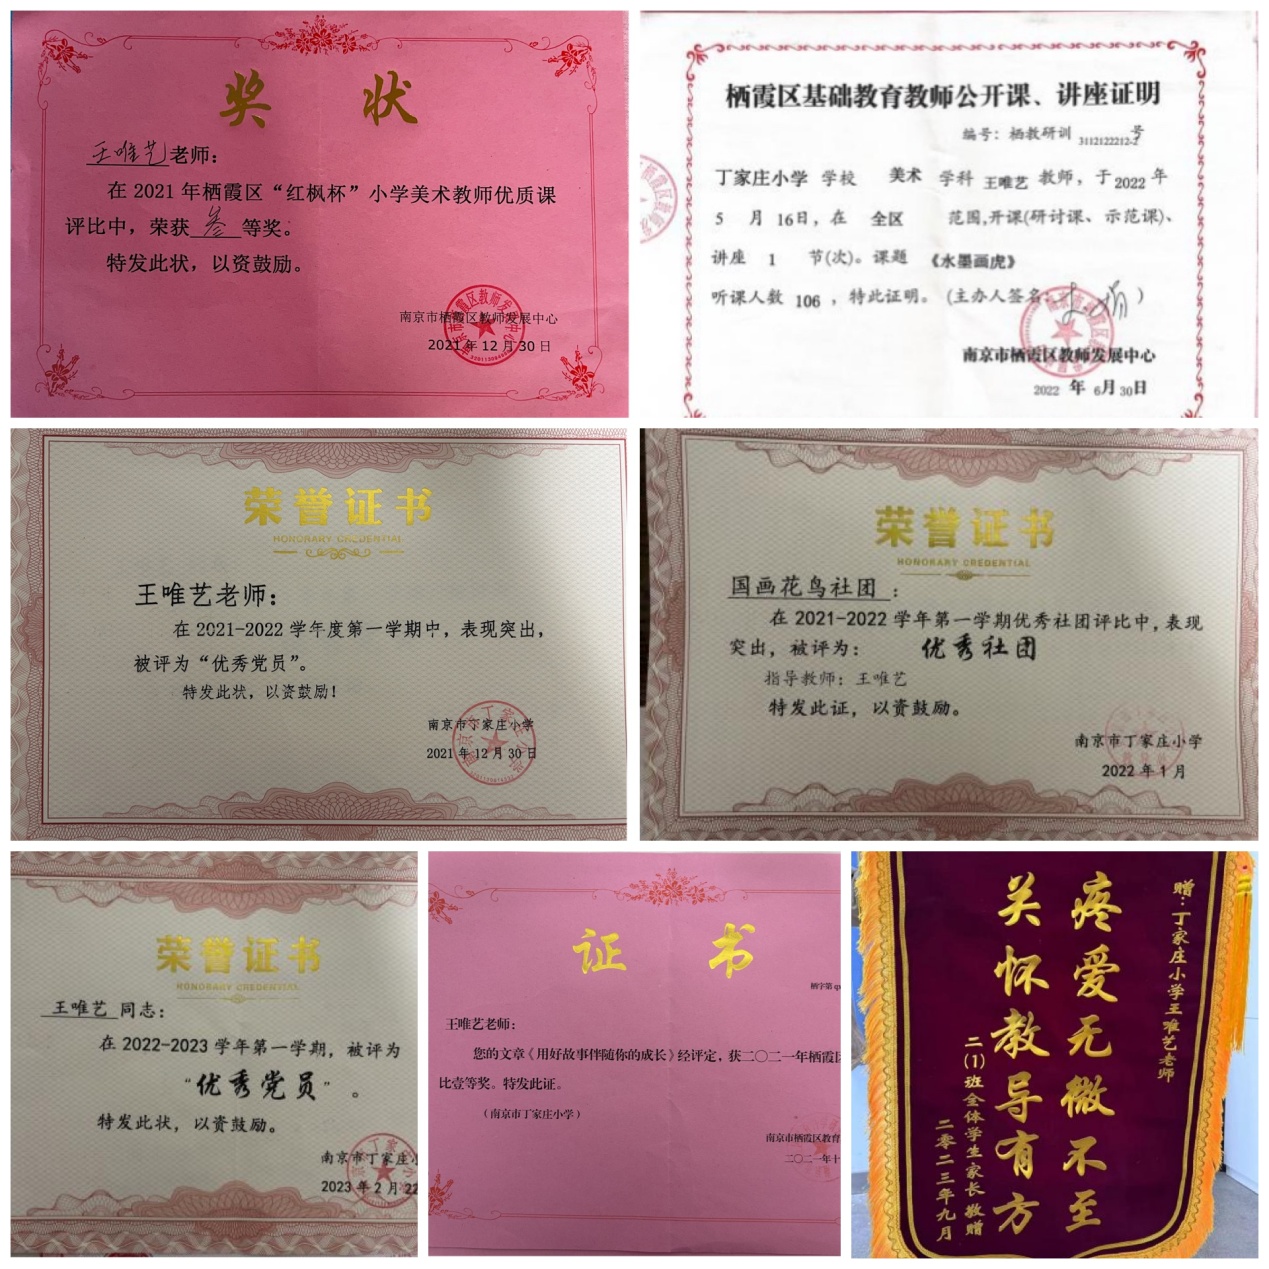 奖 状
王唯艺老师：
在 2021 年栖霞区“红枫杯”小学美术教师优质课
评比中，荣获 叁 等奖。
特发此状，以资鼓励。
南京市栖霞区教师发展中心
2021 年 12 月 30 日
栖霞区基础教育教师公开课、讲座证明
编号：栖教研训 3112122212-2号
丁家庄小学 学校 美术 学科 王唯艺 教师，于 2022 年
5 月 16日，在 全区 范围,开课(研讨课、示范课)、
讲座 1 节(次)。课题 《水墨画虎》
听课人数 106 ，特此证明。(主办人签名： )
南京市栖霞区教师发展中心
2022 年 6月 30日
荣誉证书
HONORARY CREDENTIAL
王唯艺老师：
在 2021-2022 学年度第一学期中，表现突出，
被评为“优秀党员”。
特发此状，以资鼓励！
南京市丁家庄小学
2021 年 12 月 30 日
荣誉证书
HONORARY CREDENTIAL
国画花鸟社团 ：
在 2021-2022 学年第一学期优秀社团评比中，表现
突出，被评为： 优秀社团
指导教师：王唯艺
特发此证，以资鼓励。
南京市丁家庄小学
2022 年 1 月
荣誉证书
HONORARY CREDENTIAL
王唯艺 同志：
在 2022-2023 学年第一学期，被评为
“优秀党员”。
特发此状，以资鼓励。
南京市丁家庄小
2023 年 2 月 22
证 书
栖字第
王唯艺老师：
您的文章《用好故事伴随你的成长》经评定，获二〇二一年栖霞区
比壹等奖。特发此证。
（南京市丁家庄小学）
南京市栖霞区教育
二〇二一年十
赠：丁家庄小学王唯艺老师
疼爱无微不至
关怀教导有方
二(1)班全体学生家长敬赠
二零二三年九月